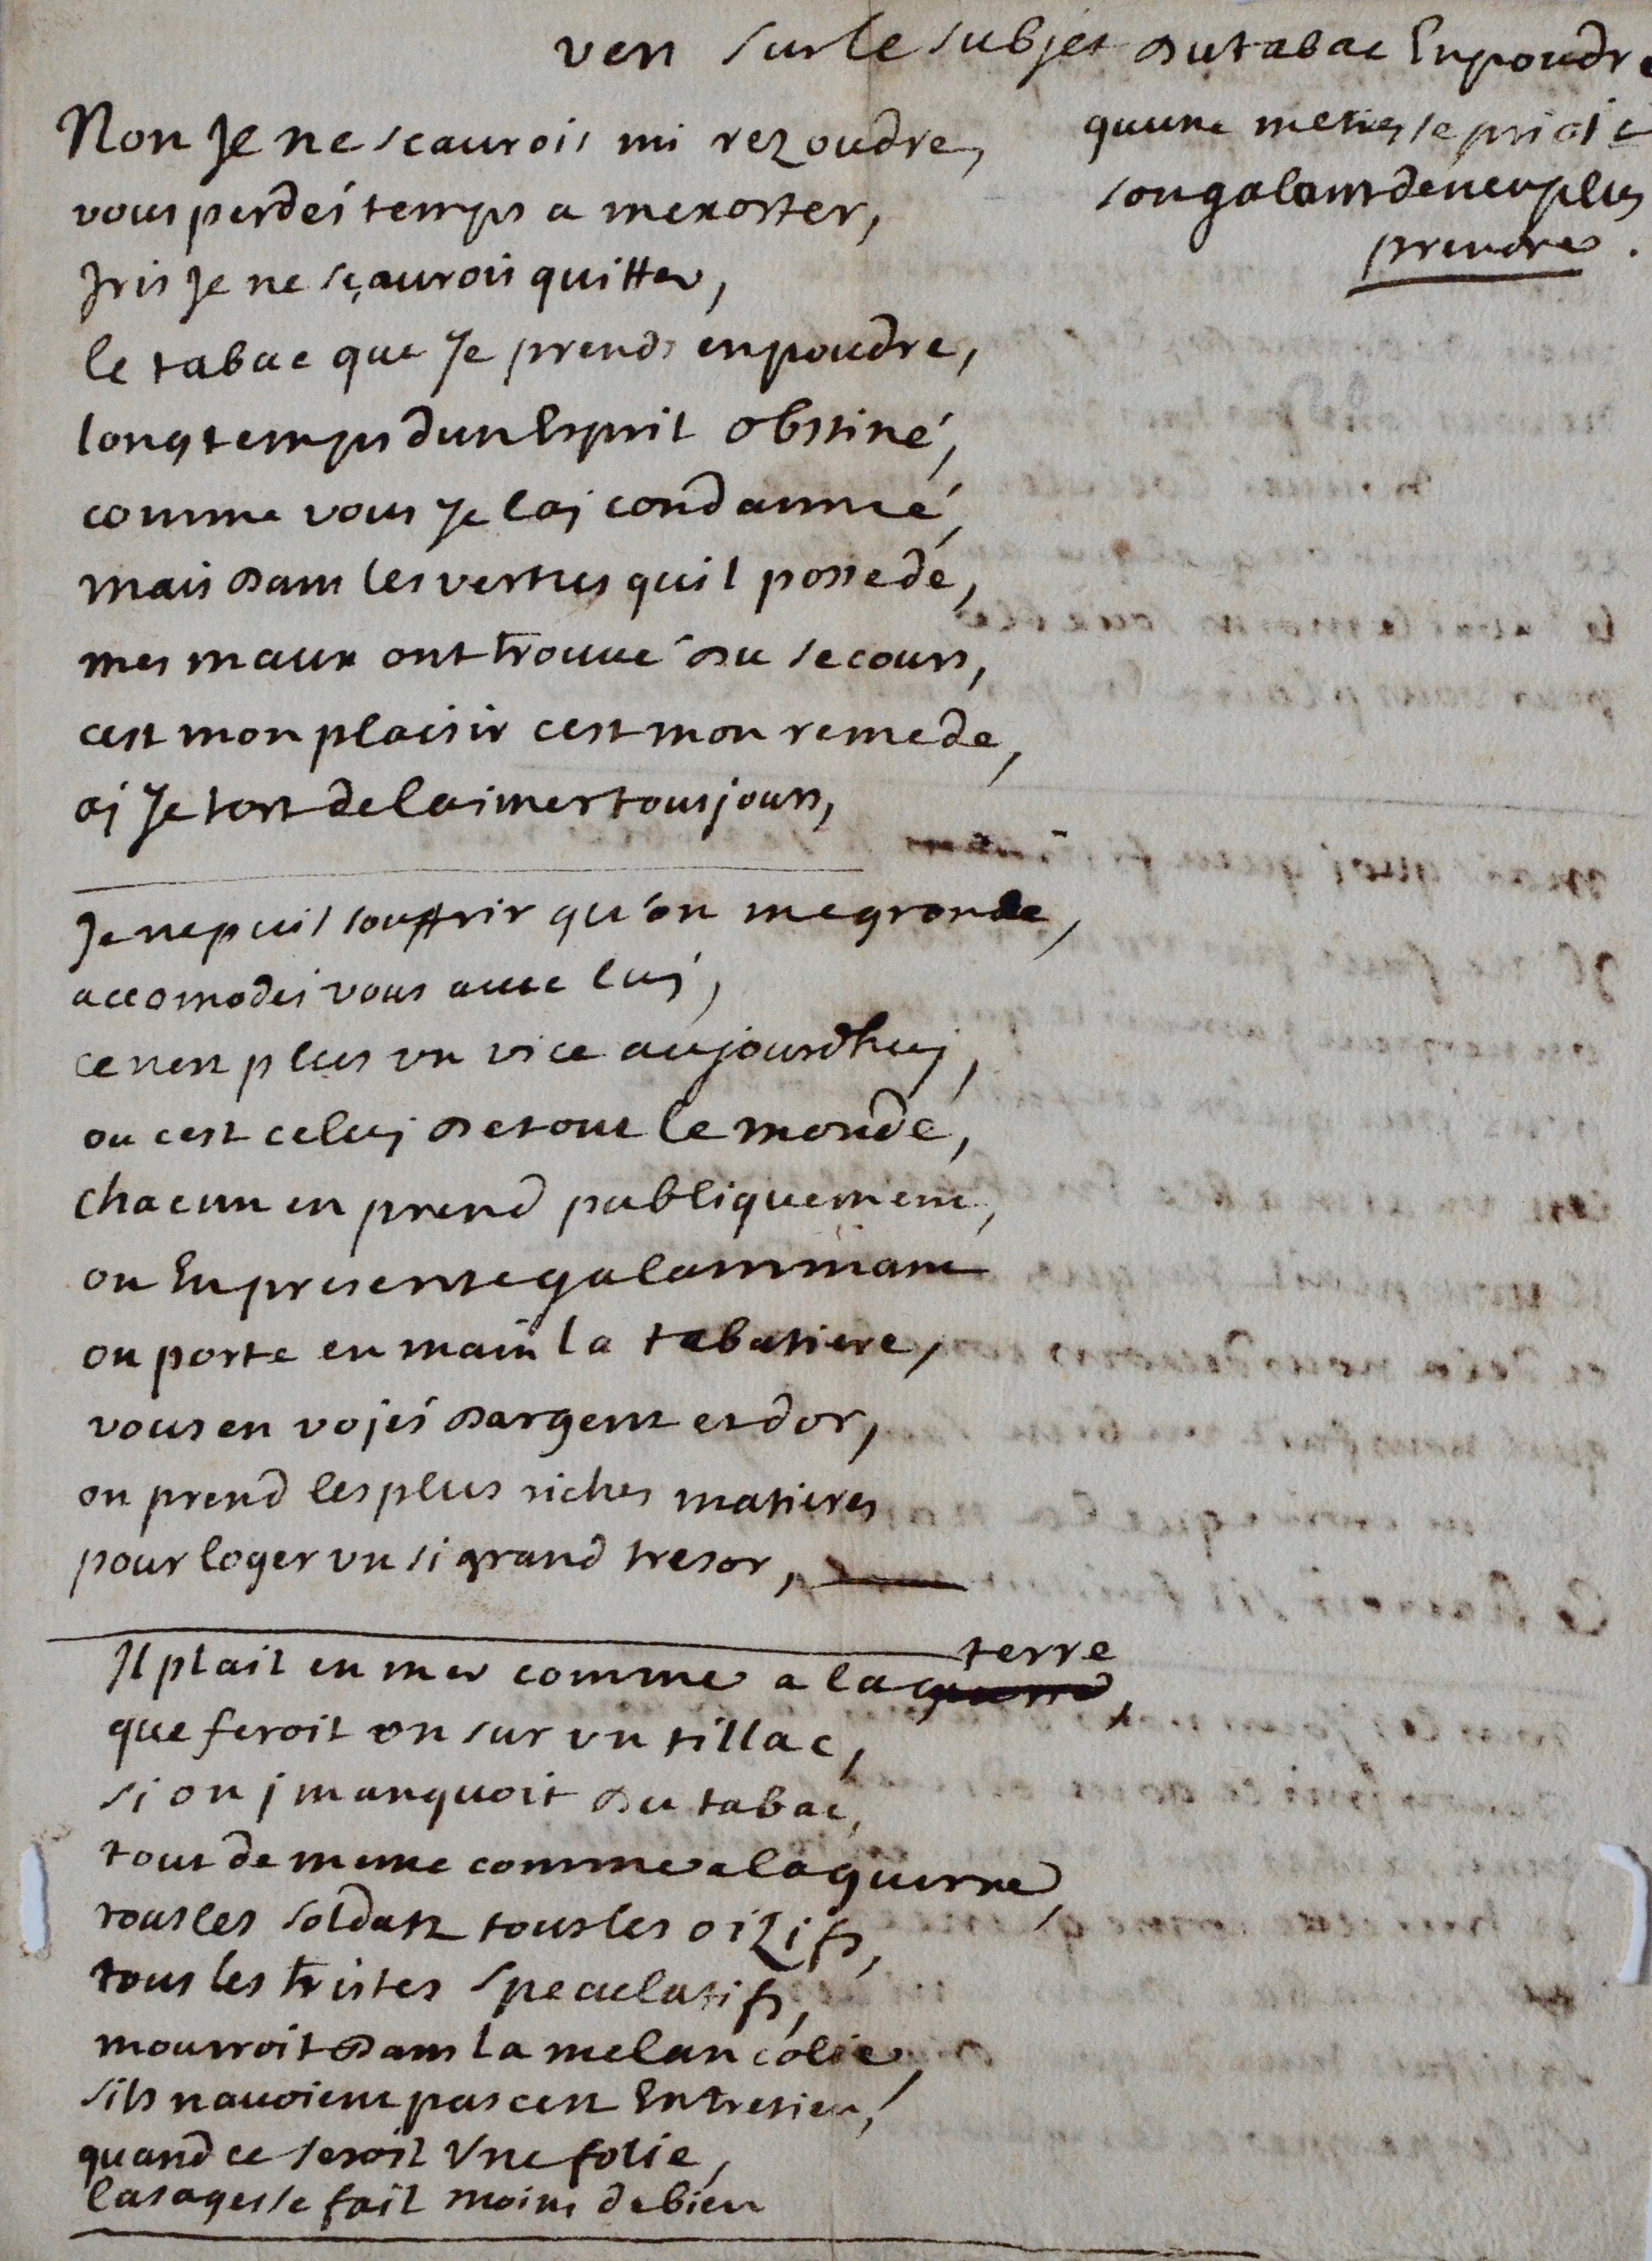 vers sur le subjet du tabac En poudre
quune metresse prioit
son galant de nen plus
prendre.
Non Je ne scaurois mi rezoudre,
vous perdés temps a mexorter,
Iris Je ne sçaurois quitter,
le tabac que Je prends en poudre,
longtemps dun Esprit obstiné,
comme vous Je laj condamné,
mais dans les vertus quil possede,
mes maux ont trouué du secours,
cest mon plaisir cest mon remede,
aj Je tort de laimer tousjours,
Je ne puis souffrir qu'on me gronde,
accomodés vous auec luj,
ce nest plus vn vice aujourdhuj,
ou cest celuj de tout le monde,
chacun en prend publiquement,
on En presente galammant
on porte en main la tabatiere,
vous en vojés dargent et dor,
on prend les plus riches matieres
pour loger vn si grand tresor,
terre
Il plait en mer comme a la guerre,
que feroit on sur vn tillac,
si on j manquoit du tabac,
tout de meme comme a la guerre,
tous les soldats tous les oizifs,
tous les tristes speculatifs,
mourroit dans la melancolie,
sils nauoient pas cest Entretien,
quand ce seroit Vne folie,
la sagesse fait moins de bien